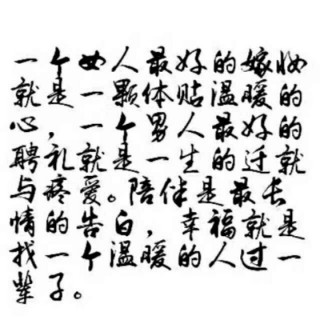 一个女人最好的嫁妆
就是一颗体贴温暖的
心，一个男人最好的
聘礼就是一生的迁就
与疼爱。陪伴是最长
情的告白，幸福就是
找一个温暖的人过一
辈子。